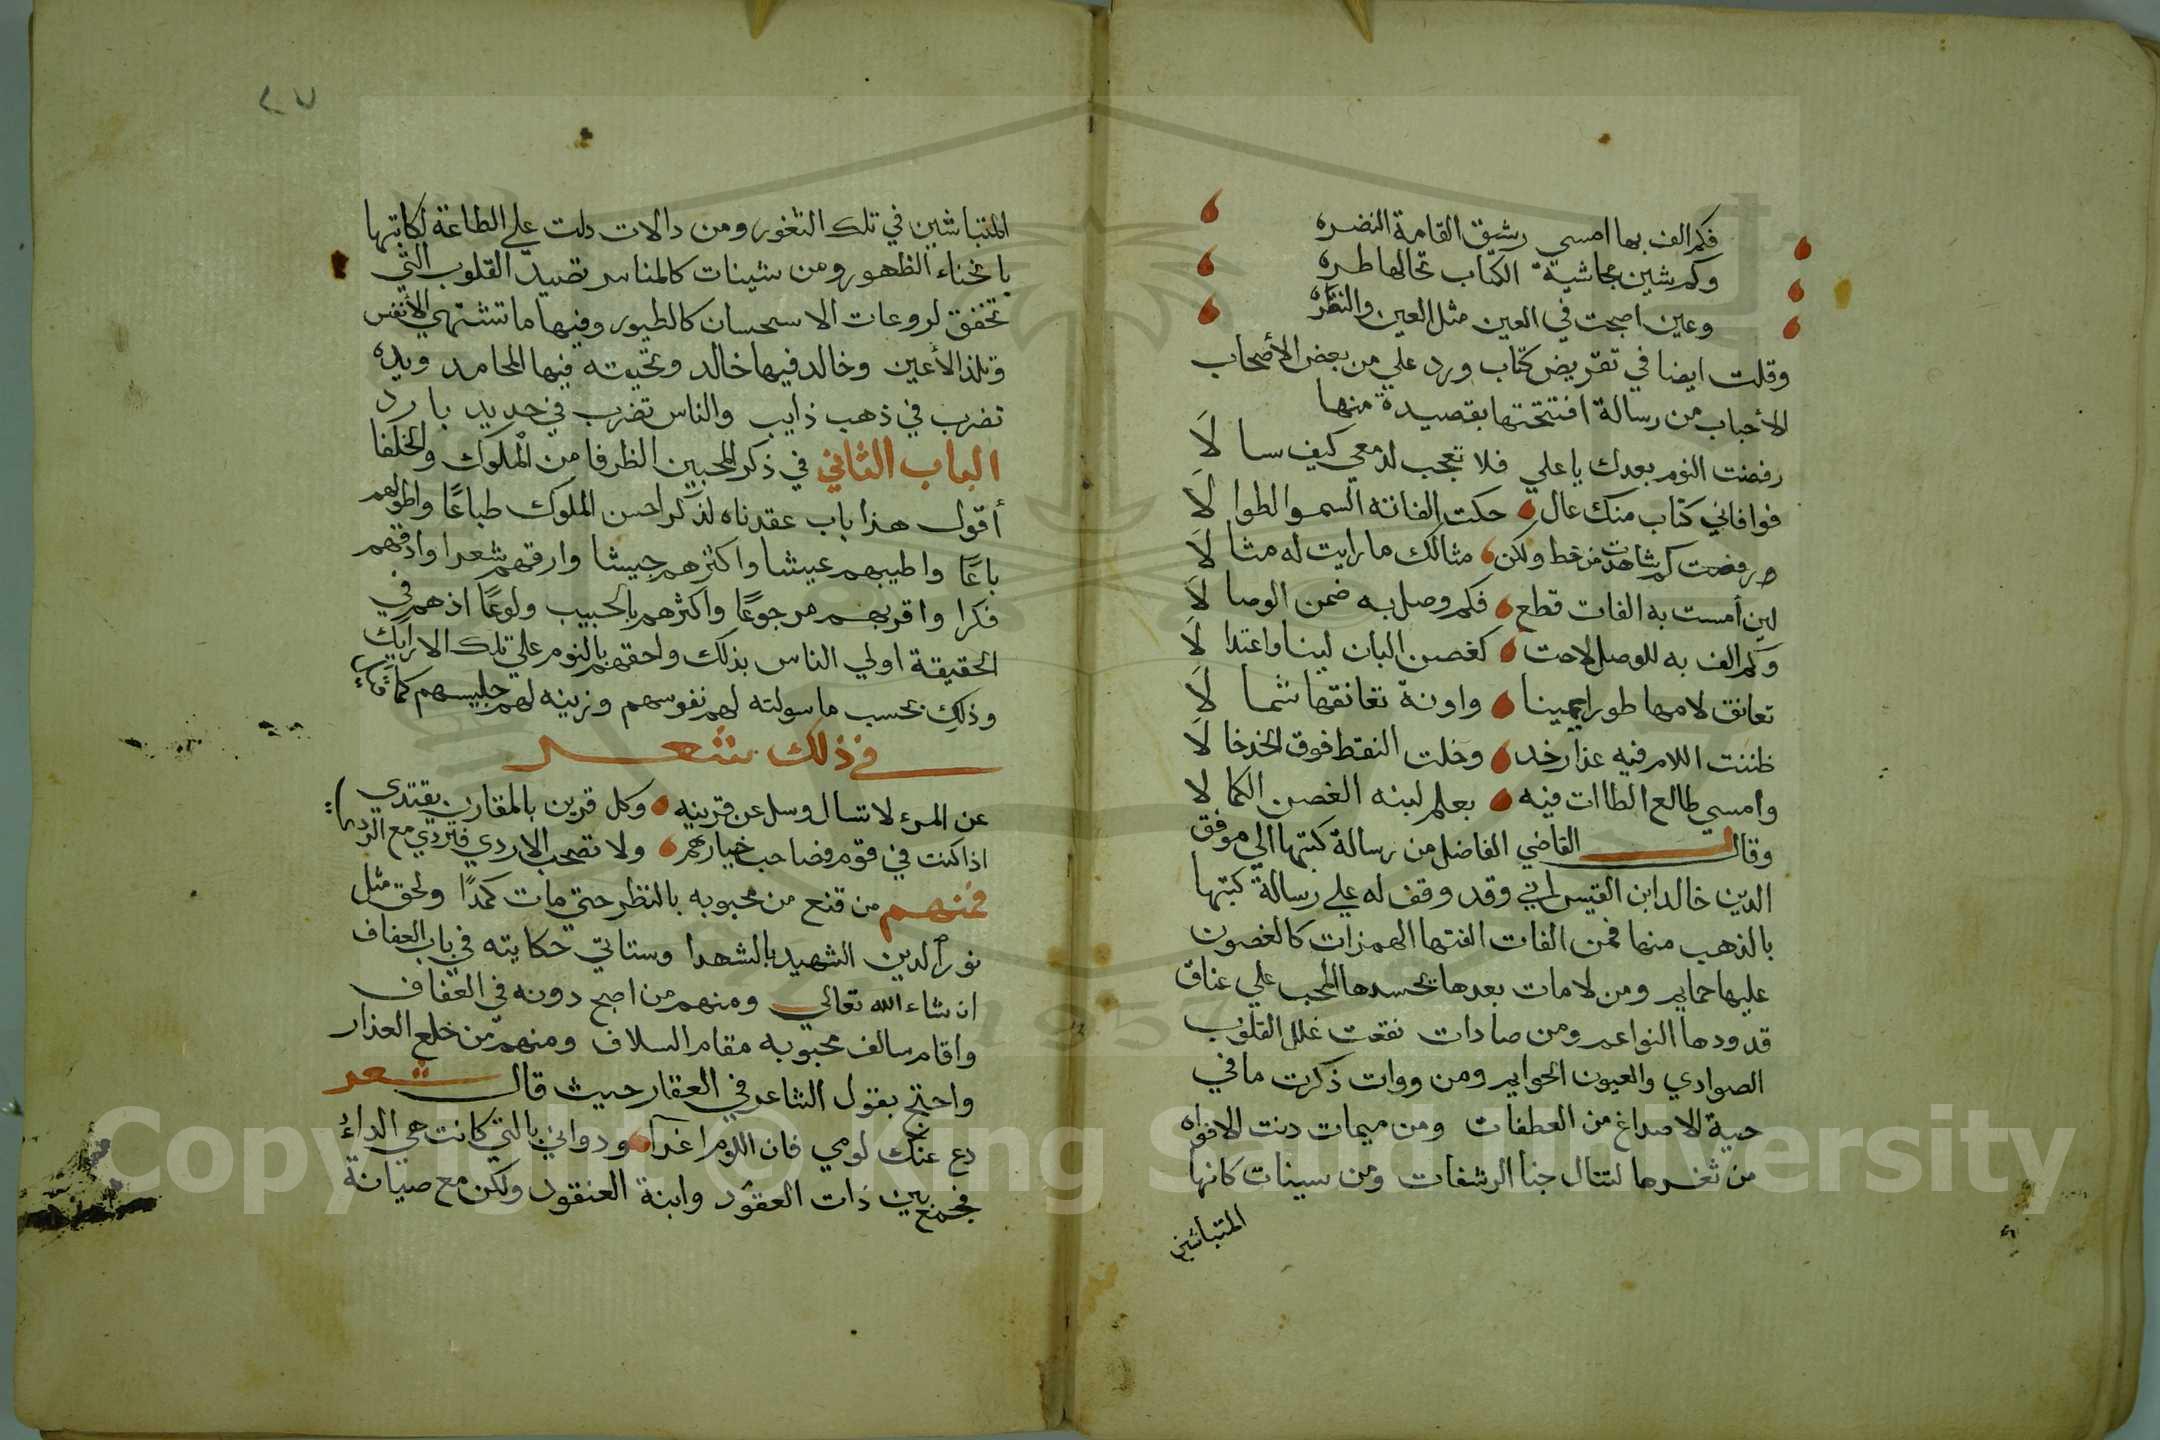 فكم الف بها امسي رشيق القامة النضره
وكم شين بحاشية الكتاب تخالها طره
وعين اصبحت في العين مثل العين والنقره
وقلت ايضا في تقريض كتاب ورد علي من بعض الأصحاب
الأحباب من رسالة افتتحتها بقصيدة منها
رفضت النوم بعدك يا علي فلا تعجب لدمعي كيف سالا
فوافاني كتاب منك عال حكت الفاته السمر الطوالا
ورفضت كم شاهدت من خط ولكن مثالك ما رايت له مثالا
لين أمست به الفات قطع فكم وصل به ضمن الوصالا
وكم الف به للوصل لاحت كغصن البان لينا واعتدالا
تعانق لامها طورا يمينا واونة تعانقها شمالا
ظننت اللام فيه عذار خد وخلت النقط فوق الخد خالا
وامسي طالع الطاات فيه بعلم لينه الغصن الكمالا
وقال القاضي الفاضل من رسالة كتبها الي موفق
الدين خالد ابن القيسراني وقد وقف له علي رسالة كتبها
بالذهب منها فمن الفات الفتها الهمزات كالغصون
عليها حمايم ومن لامات بعدها يحسدها المحب علي عناق
قدودها النواعم ومن صادات نقعت غلل القلوب
الصوادي والعيون الحوايم ومن ووات ذكرت ما في
حية الاصداغ من العطفات ومن ميمات دنت الافواه
من ثغرها لتنال جنا الرشفات ومن سينات كانها
المتباشين
٢٧
المتباشين في تلك الثغور ومن دالات دلت علي الطاعة لكاتبها
بانحناء الظهور ومن شينات كالمناسر تصيد القلوب التي
تخفق لروعات الاستحسان كالطيور وفيها ما تشتهي الأنفس
وتلذ الأعين وخالد فيها خالد وتحيته فيها المحامد ويده
تضرب في ذهب ذايب والناس تضرب في حديد بارد
الباب الثاني في ذكر المحبين الظرفا من الملوك والخلفا
أقول هذا باب عقدناه لذكر احسن الملوك طباعًا واطولهم
باعًا واطيبهم عيشا واكثرهم جيشا وارقهم شعرا وادقهم
فكرا واقربهم مرجوعًا واكثرهم بالحبيب ولوعًا اذ هم في
الحقيقة اولي الناس بذلك واحقهم بالنوم علي تلك الارايك
وذلك بحسب ما سولته لهم نفوسهم وزينه لهم جليسهم كما قيل
في ذلك شعر
عن المرء لا تسال وسل عن قرينه وكل قرين بالمقارن يقتدي
اذا كنت في قوم فصاحب خيارهم ولا تصحب الاردي فتردي مع الردي
فمنهم من قنع من محبوبه بالنظر حتي مات كمدًا ولحق مثل
نور الدين الشهيد بالشهدا وستاتي حكايته في باب العفاف
ان شاء الله تعالي ومنهم من اصبح دونه في العفاف
واقام سالف محبوبه مقام السلاف ومنهم من خلع العذار
واحتج بقول الشاعر في العقار حيث قال شعر
دع عنك لومي فان اللوم اغرا ودواني بالتي كانت هي الداء
فجمع بين ذات العقود وابنة العنقود ولكن مع صيانة
Copyright © King Saud University
1957